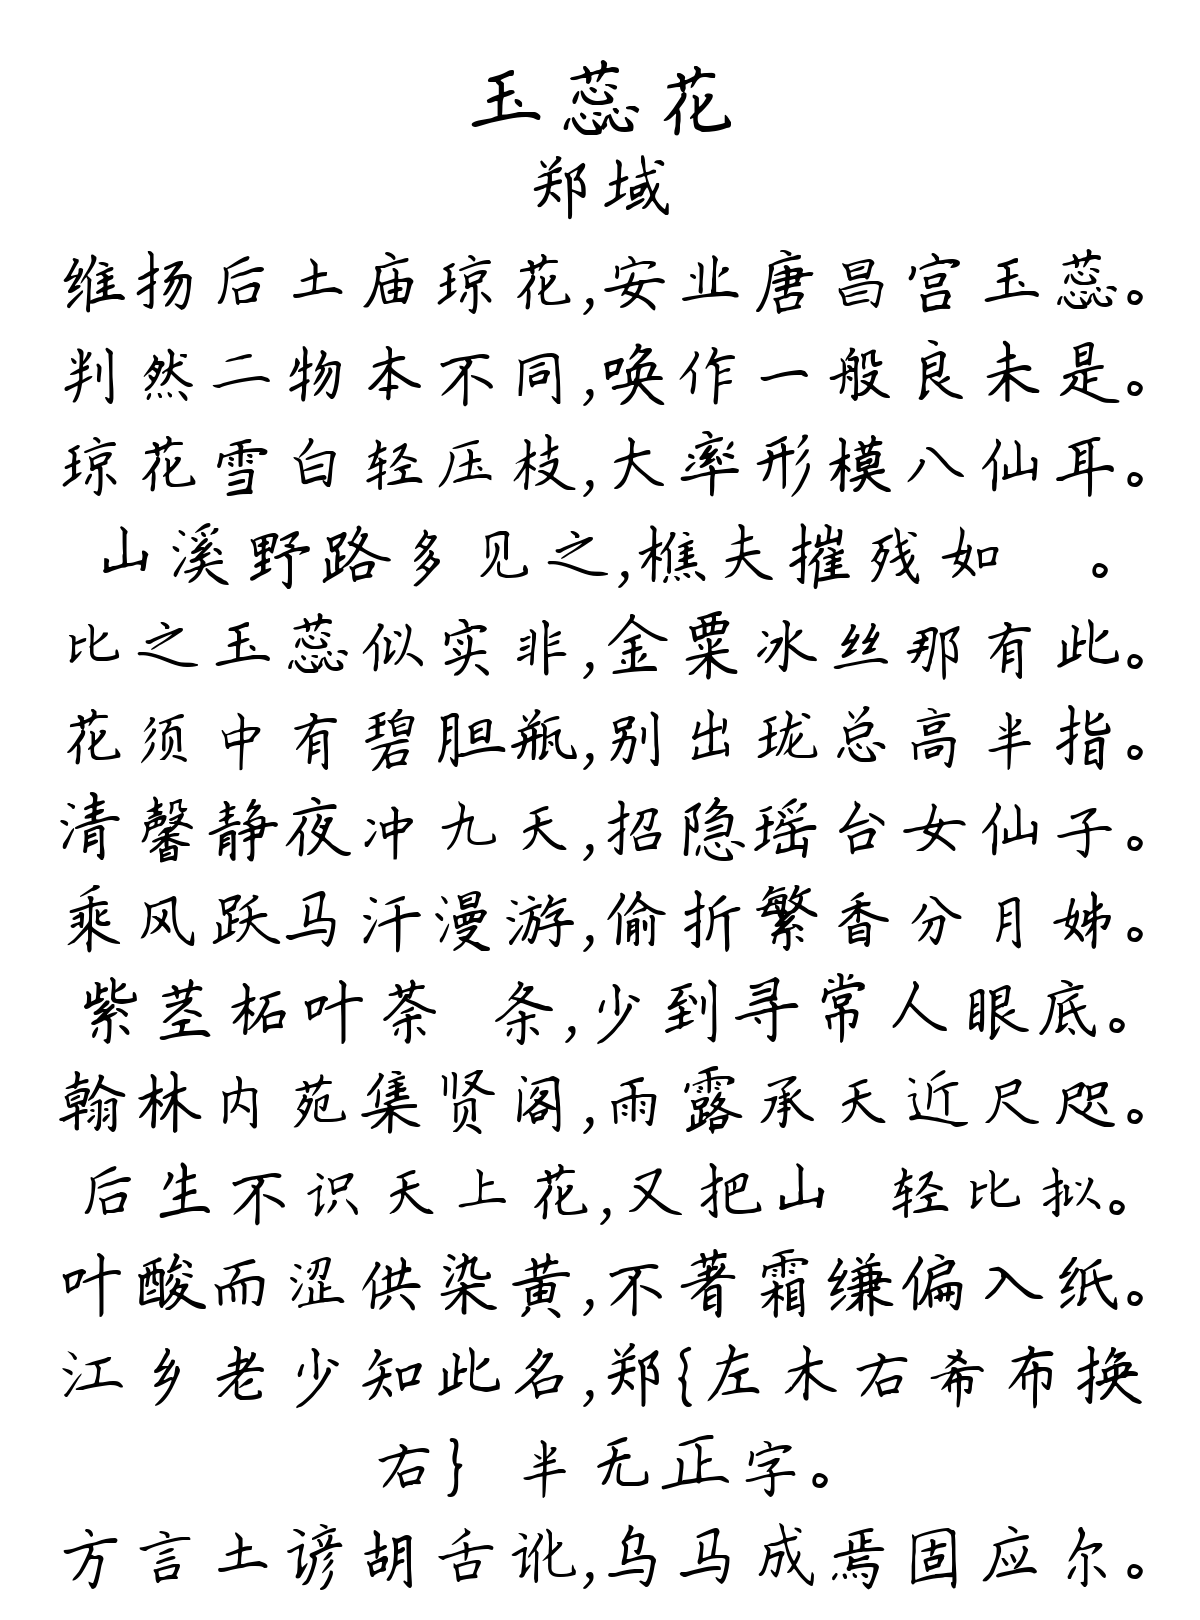 玉蕊花
郑域
维扬后土庙琼花,安业唐昌宫玉蕊。
判然二物本不同,唤作一般良未是。
琼花雪白轻压枝,大率形模八仙耳。
山溪野路多见之,樵夫摧残如 。
比之玉蕊似实非,金粟冰丝那有此。
花须中有碧胆瓶,别出珑总高半指。
清馨静夜冲九天,招隐瑶台女仙子。
乘风跃马汗漫游,偷折繁香分月姊。
紫茎柘叶荼 条,少到寻常人眼底。
翰林内苑集贤阁,雨露承天近尺咫。
后生不识天上花,又把山 轻比拟。
叶酸而涩供染黄,不著霜缣偏入纸。
江乡老少知此名,郑{左木右希布换
右} 半无正字。
方言土谚胡舌讹,乌马成焉固应尔。